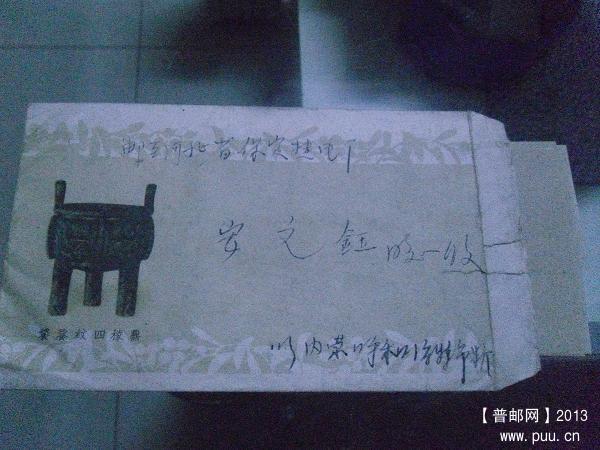 邮至河北省保定热电厂
安文钰 收
饕餮纹四棱鼎
内蒙呼和浩特
【普邮网】2013
www.puu.cn